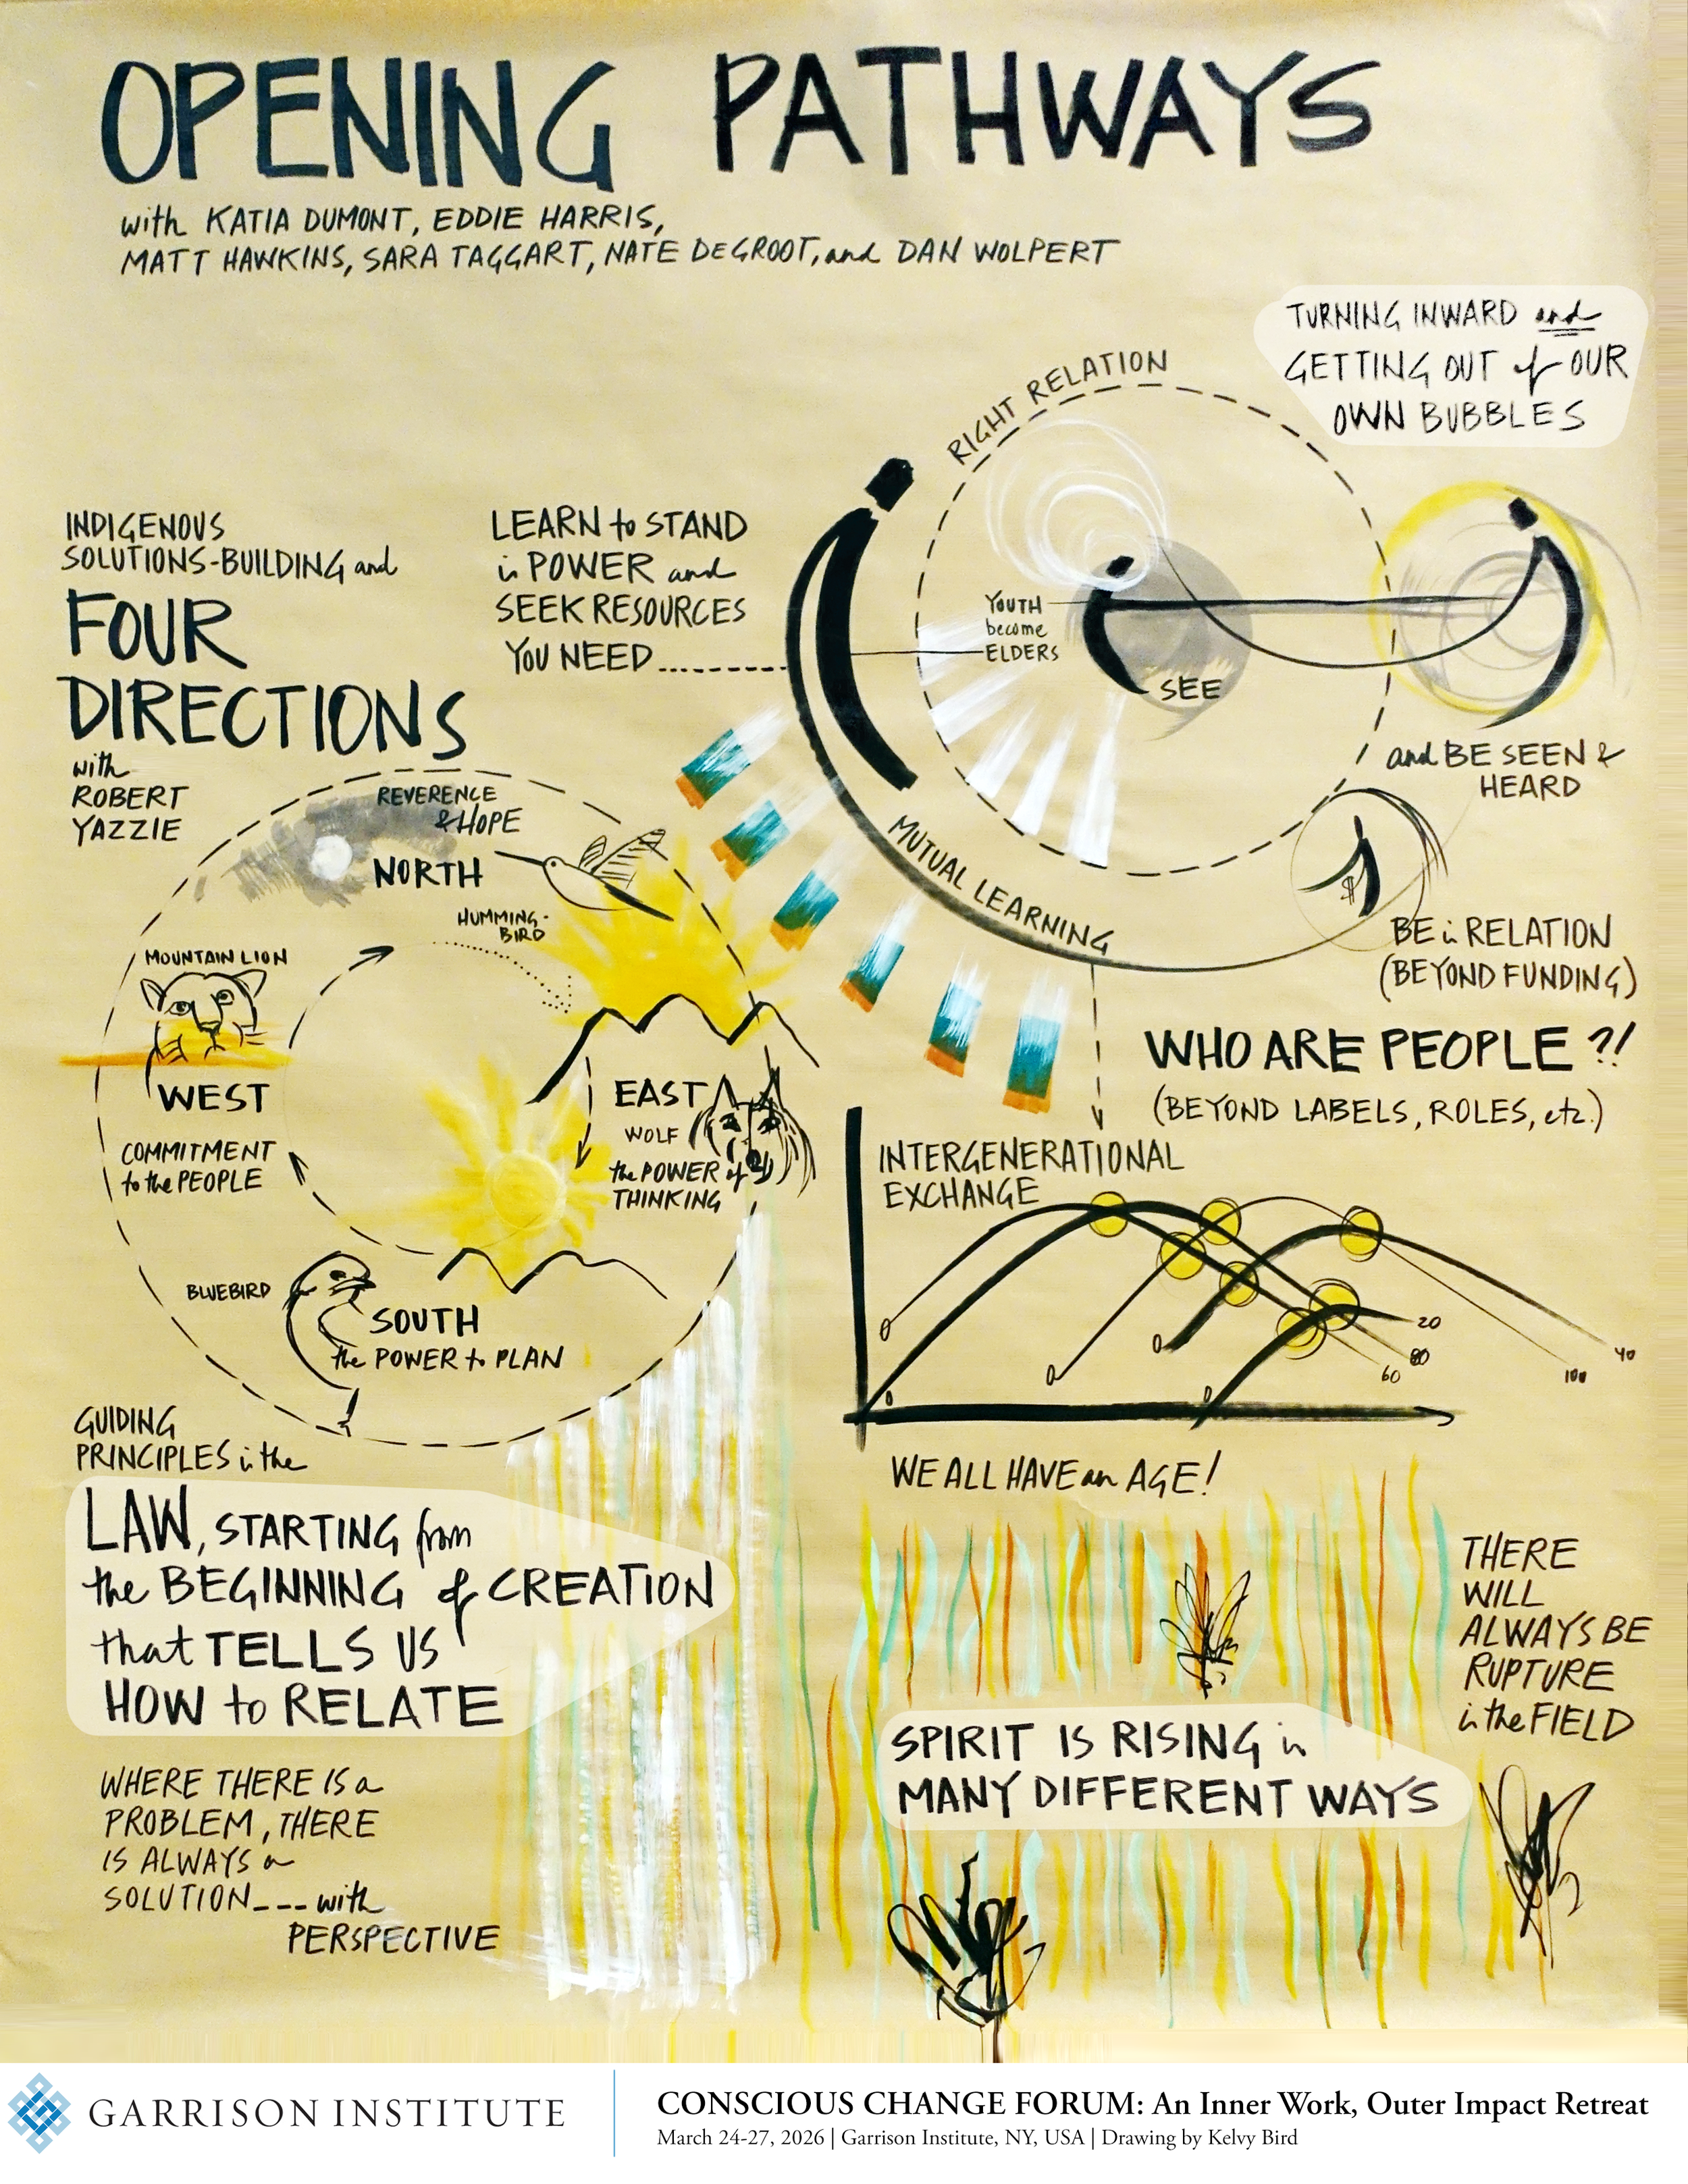 OPENING PATHWAYS
with KATIA DUMONT, EDDIE HARRIS,
MATT HAWKINS, SARA TAGGART, NATE DEGROOT, and DAN WOLPERT
TURNING INWARD and
GETTING OUT of OUR
OWN BUBBLES
RIGHT RELATION
INDIGENOUS
SOLUTIONS-BUILDING and
FOUR
DIRECTIONS
with
ROBERT
YAZZIE
LEARN to STAND
in POWER and
SEEK RESOURCES
YOU NEED
YOUTH
become
ELDERS
SEE
and BE SEEN &
HEARD
MUTUAL LEARNING
$
BE in RELATION
(BEYOND FUNDING)
WHO ARE PEOPLE ?!
(BEYOND LABELS, ROLES, etc.)
REVERENCE
& HOPE
NORTH
HUMMING-
BIRD
MOUNTAIN LION
WEST
COMMITMENT
to the PEOPLE
EAST
WOLF
the POWER of
THINKING
BLUEBIRD
SOUTH
the POWER to PLAN
INTERGENERATIONAL
EXCHANGE
0
0
0
0
0
20
80
60
100
40
WE ALL HAVE an AGE!
GUIDING
PRINCIPLES in the
LAW, STARTING from
the BEGINNING of CREATION
that TELLS US
HOW to RELATE
WHERE THERE IS a
PROBLEM, THERE
IS ALWAYS a
SOLUTION --- with
PERSPECTIVE
THERE
WILL
ALWAYS BE
RUPTURE
in the FIELD
SPIRIT IS RISING in
MANY DIFFERENT WAYS
GARRISON INSTITUTE
CONSCIOUS CHANGE FORUM: An Inner Work, Outer Impact Retreat
March 24-27, 2026 | Garrison Institute, NY, USA | Drawing by Kelvy Bird